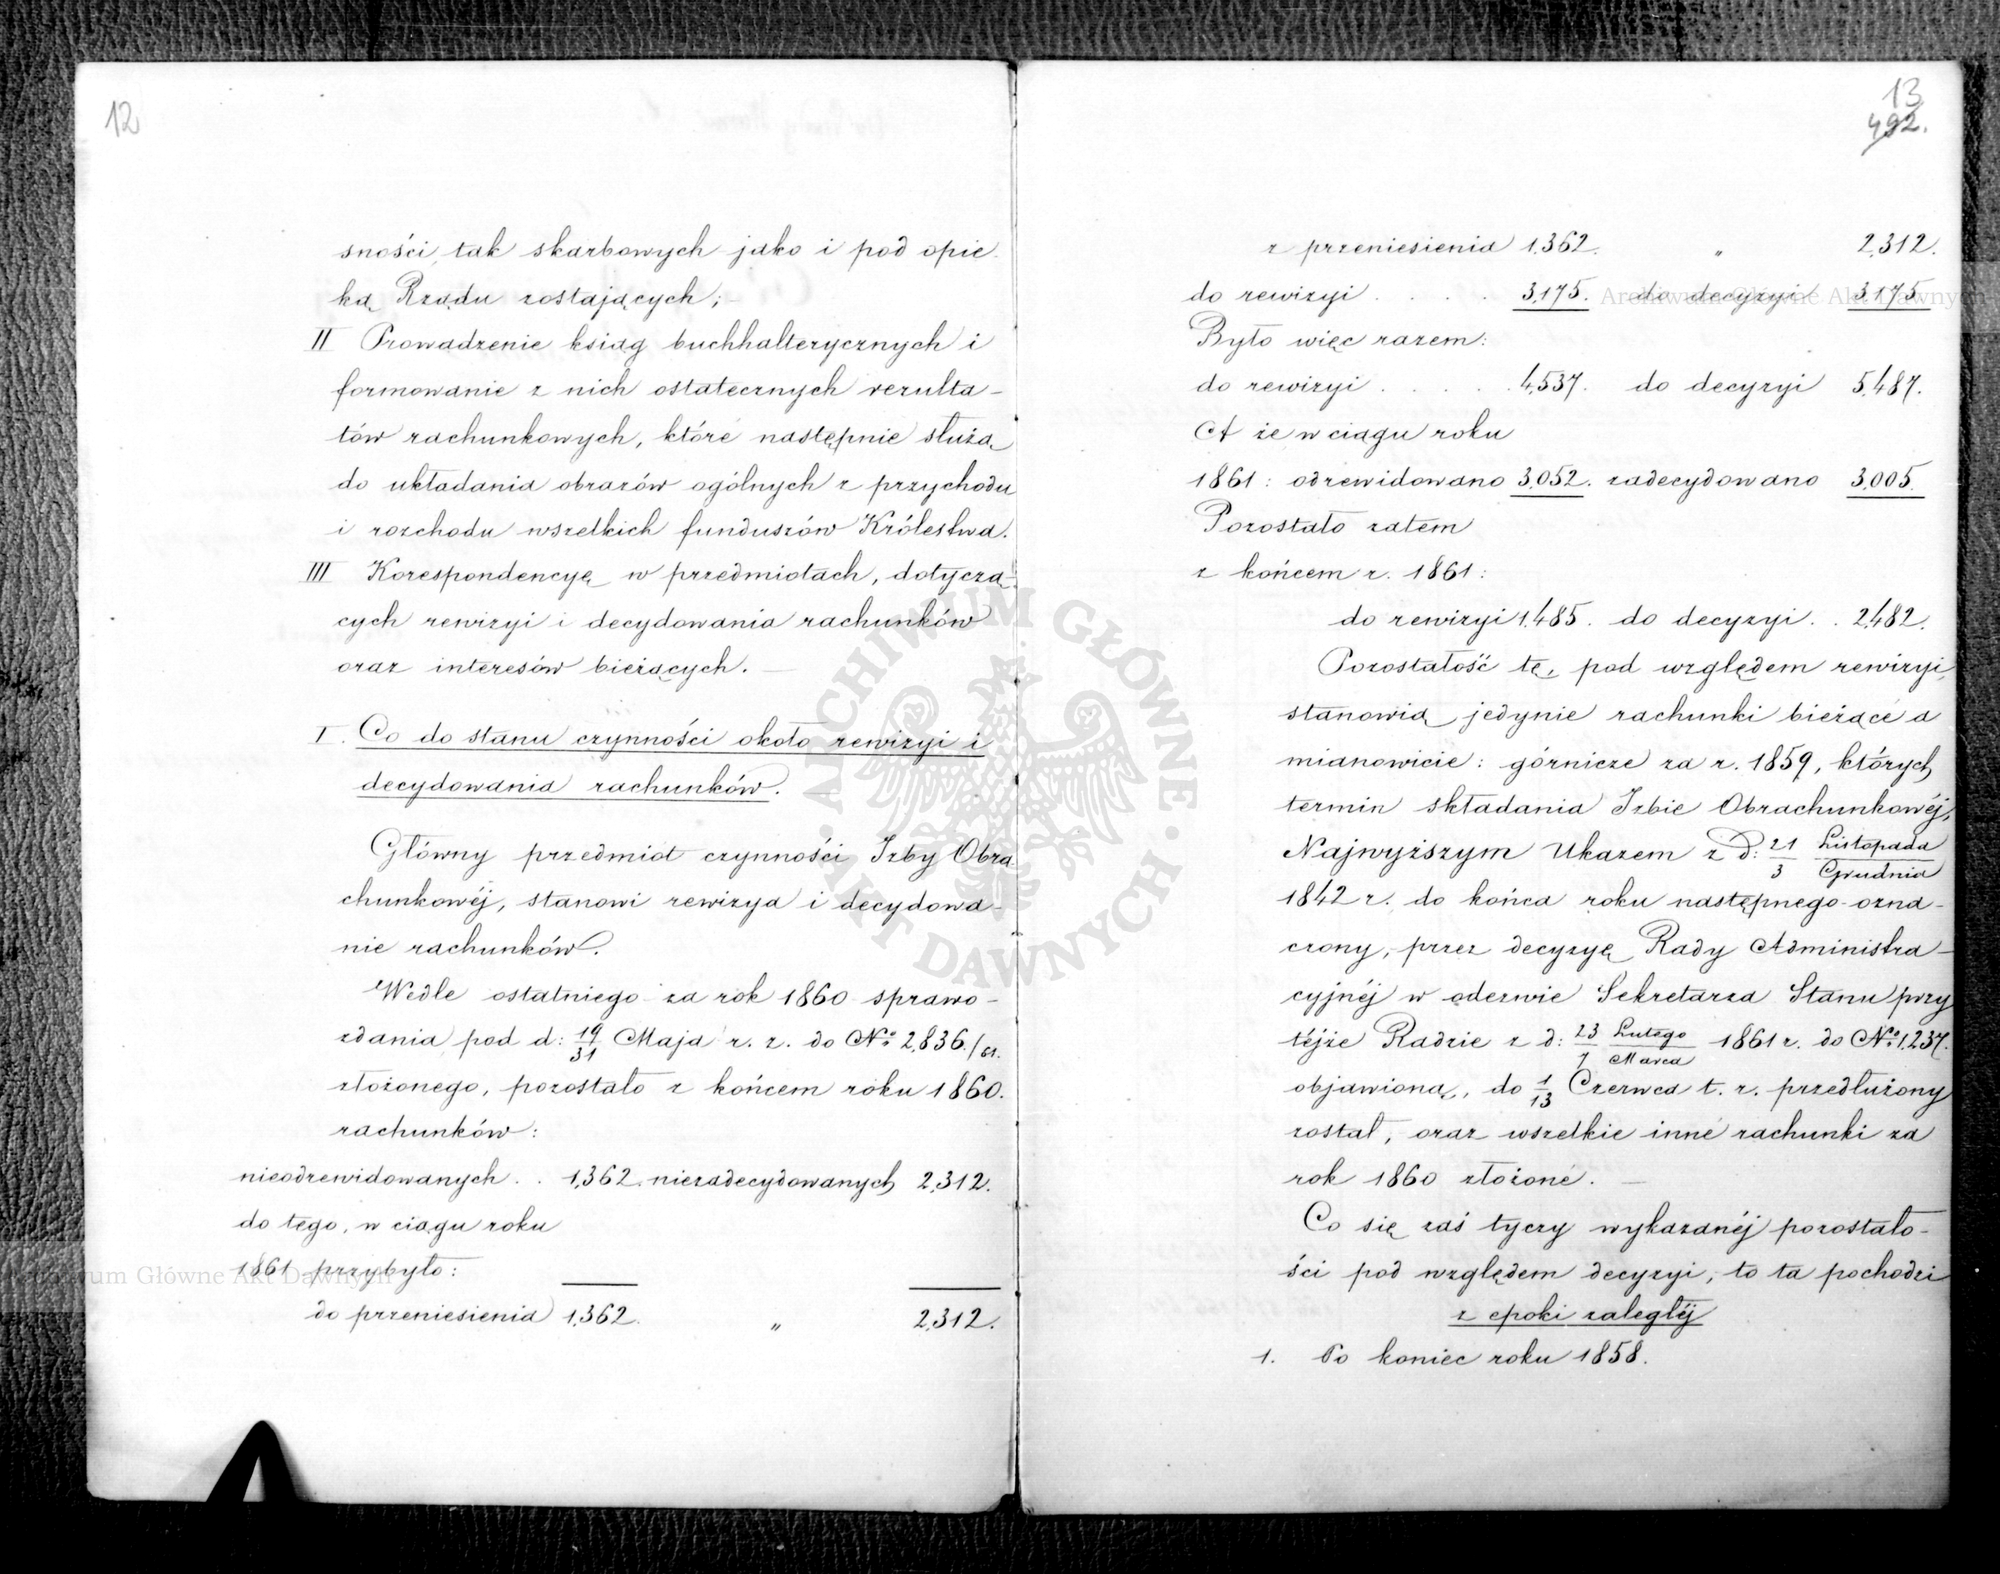 12
sności, tak skarbowych jako i pod opie-
ką Rządu zostających;
II Prowadzenie ksiąg buchhalterycznych i
formowanie z nich ostatecznych rezulta-
tów rachunkowych, które następnie służą
do układania obrazów ogólnych z przychodu
i rozchodu wszelkich funduszów Królestwa.
III Korespondencyę w przedmiotach, dotyczą-
cych rewizyi i decydowania rachunków
oraz interesów bieżących. —
I. Co do stanu czynności około rewizyi i
decydowania rachunków.
Główny przedmiot czynności Izby Obra-
chunkowéj, stanowi rewizya i decydowa-
nie rachunków.
Wedle ostatniego za rok 1860 sprawo-
zdania pod d: 19/31 Maja r. z. do No 2,836./61.
złożonego, pozostało z końcem roku 1860.
rachunków:
nieodrewidowanych . . 1,362. niezadecydowanych 2,312.
do tego, w ciągu roku
1861 przybyło:
do przeniesienia 1,362. „ 2,312.
13
492.
z przeniesienia 1,362. „ 2,312.
do rewizyi . . . . 3,175. do decyzyi 3,175
Było więc razem:
do rewizyi . . . . 4,537. do decyzyi 5,487.
A że w ciągu roku
1861: odrewidowano 3,052. zadecydowano 3,005.
Pozostało zatem
z końcem r. 1861:
do rewizyi 1,485. do decyzyi . . 2,482.
Pozostałość tę, pod względem rewizyi,
stanowią jedynie rachunki bieżące a
mianowicie: górnicze za r. 1859, których
termin składania Izbie Obrachunkowéj,
Najwyższym Ukazem z D: 21/3 Listopada/Grudnia
1842 r. do końca roku następnego ozna-
czony, przez decyzyę Rady Administra-
cyjnéj w odezwie Sekretarza Stanu przy
téjże Radzie z d: 23/7 Lutego/Marca 1861 r. do No 1,237.
objawioną, do 1/13 Czerwca t. r. przedłużony
został, oraz wszelkie inne rachunki za
rok 1860 złożone. —
Co się zaś tyczy wykazanéj pozostało-
ści pod względem decyzyi, to ta pochodzi
z epoki zaległéj
1. Po koniec roku 1858.
Archiwum Główne Akt Dawnych
Archiwum Główne Akt Dawnych
ARCHIWUM GŁÓWNE · AKT DAWNYCH ·